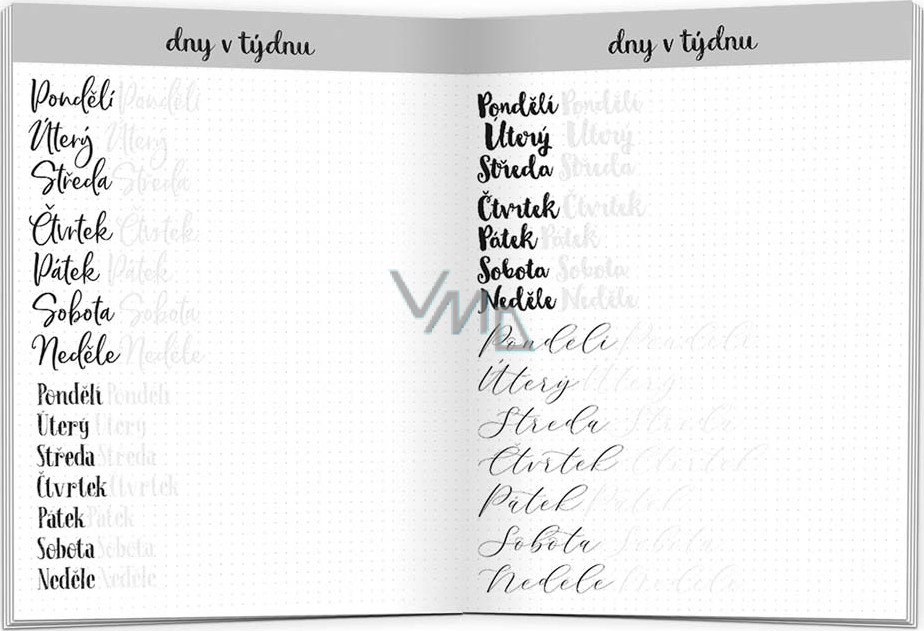 dny v týdnu
Pondělí Pondělí
Úterý Úterý
Středa Středa
Čtvrtek Čtvrtek
Pátek Pátek
Sobota Sobota
Neděle Neděle
Pondělí Pondělí
Úterý Úterý
Středa Středa
Čtvrtek Čtvrtek
Pátek Pátek
Sobota Sobota
Neděle Neděle
dny v týdnu
Pondělí Pondělí
Úterý Úterý
Středa Středa
Čtvrtek Čtvrtek
Pátek Pátek
Sobota Sobota
Neděle Neděle
Pondelí Pondelí
Úterý Úterý
Streda Streda
Čtvrtek Čtvrtek
Pátek Pátek
Sobota Sobota
Nedele Nedele
VMD